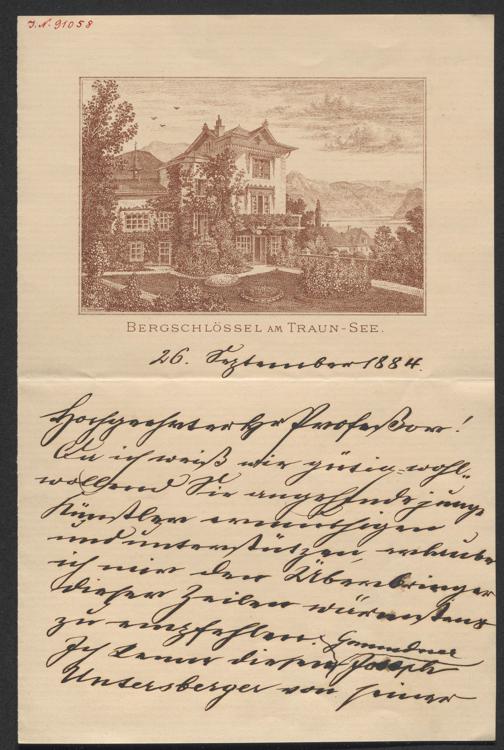 J.N. 91058
BERGSCHLÖSSEL AM TRAUN-SEE.
26. September 1884.
Hochgeehrter Hr Professor!
Da ich weiß wie gütig-wohl-
wollend Sie angehende junge
Künstler ermuthigen
und unterstützen, erlaube
ich mir den Überbringer
dieser Zeilen wärmstens
zu empfehlen. Gmundner
Ich kenne diesen Joseph
Untersberger von seiner